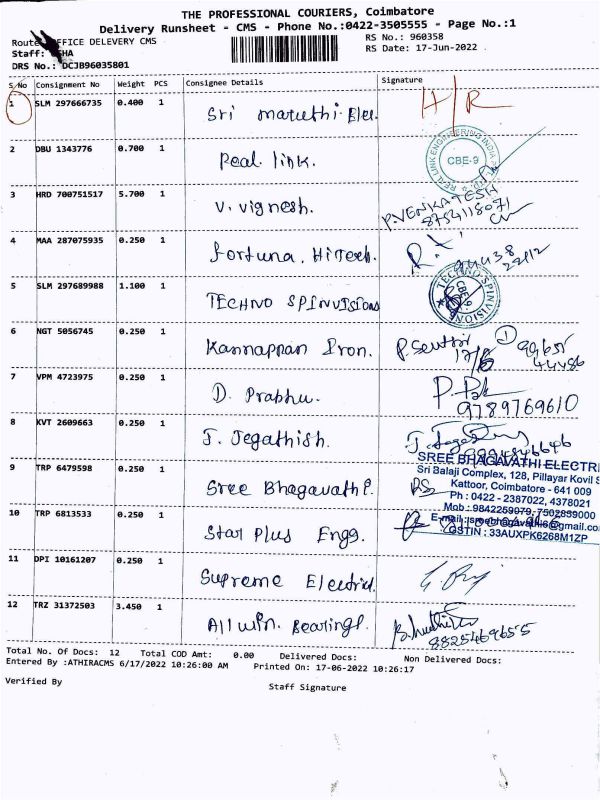 THE PROFESSIONAL COURIERS, Coimbatore
Delivery Runsheet - CMS - Phone No.:0422-3505555 - Page No.:1
Route: OFFICE DELEVERY CMS RS No.: 960358
Staff: RS Date: 17-Jun-2022
DRS No.: DCJB96035801
S.No Consignment No Weight PCS Consignee Details Signature
1 SLM 297666735 0.400 1 Sri Maruthi Elec. H/R
2 DBU 1343776 0.700 1 Real link. CBE-9
3 HRD 700751517 5.700 1 V. Vignesh. P.VENKATESH
8754118071
4 MAA 287075935 0.250 1 Fortuna. HiTech.
5 SLM 297689988 1.100 1 TECHNO SPINVISIONS TECHNO SPINVISIONS CBE-9
6 NGT 5056745 0.250 1 Kannappan Iron. P. Senthil 1
17/6
7 VPM 4723975 0.250 1 D. Prabhu.
9789769610
8 KVT 2609663 0.250 1 J. Jegathish.
SREE BHAGAVATHI ELECTRI
Sri Balaji Complex, 128, Pillayar Kovil S
9 TRP 6479598 0.250 1 Sree Bhagavathi. Kattoor, Coimbatore - 641 009
Ph : 0422 - 2387022, 4378021
Mob : 9842259079, 7502859000
10 TRP 6813533 0.250 1 Star Plus Engg.
GSTIN : 33AUXPK6268M1ZP
11 DPI 10161207 0.250 1 Supreme Electrical
12 TRZ 31372503 3.450 1 All win. Bearings.
8825469655
Total No. Of Docs: 12 Total COD Amt: 0.00 Delivered Docs: Non Delivered Docs:
Entered By :ATHIRACMS 6/17/2022 10:26:00 AM Printed On: 17-06-2022 10:26:17
Verified By Staff Signature